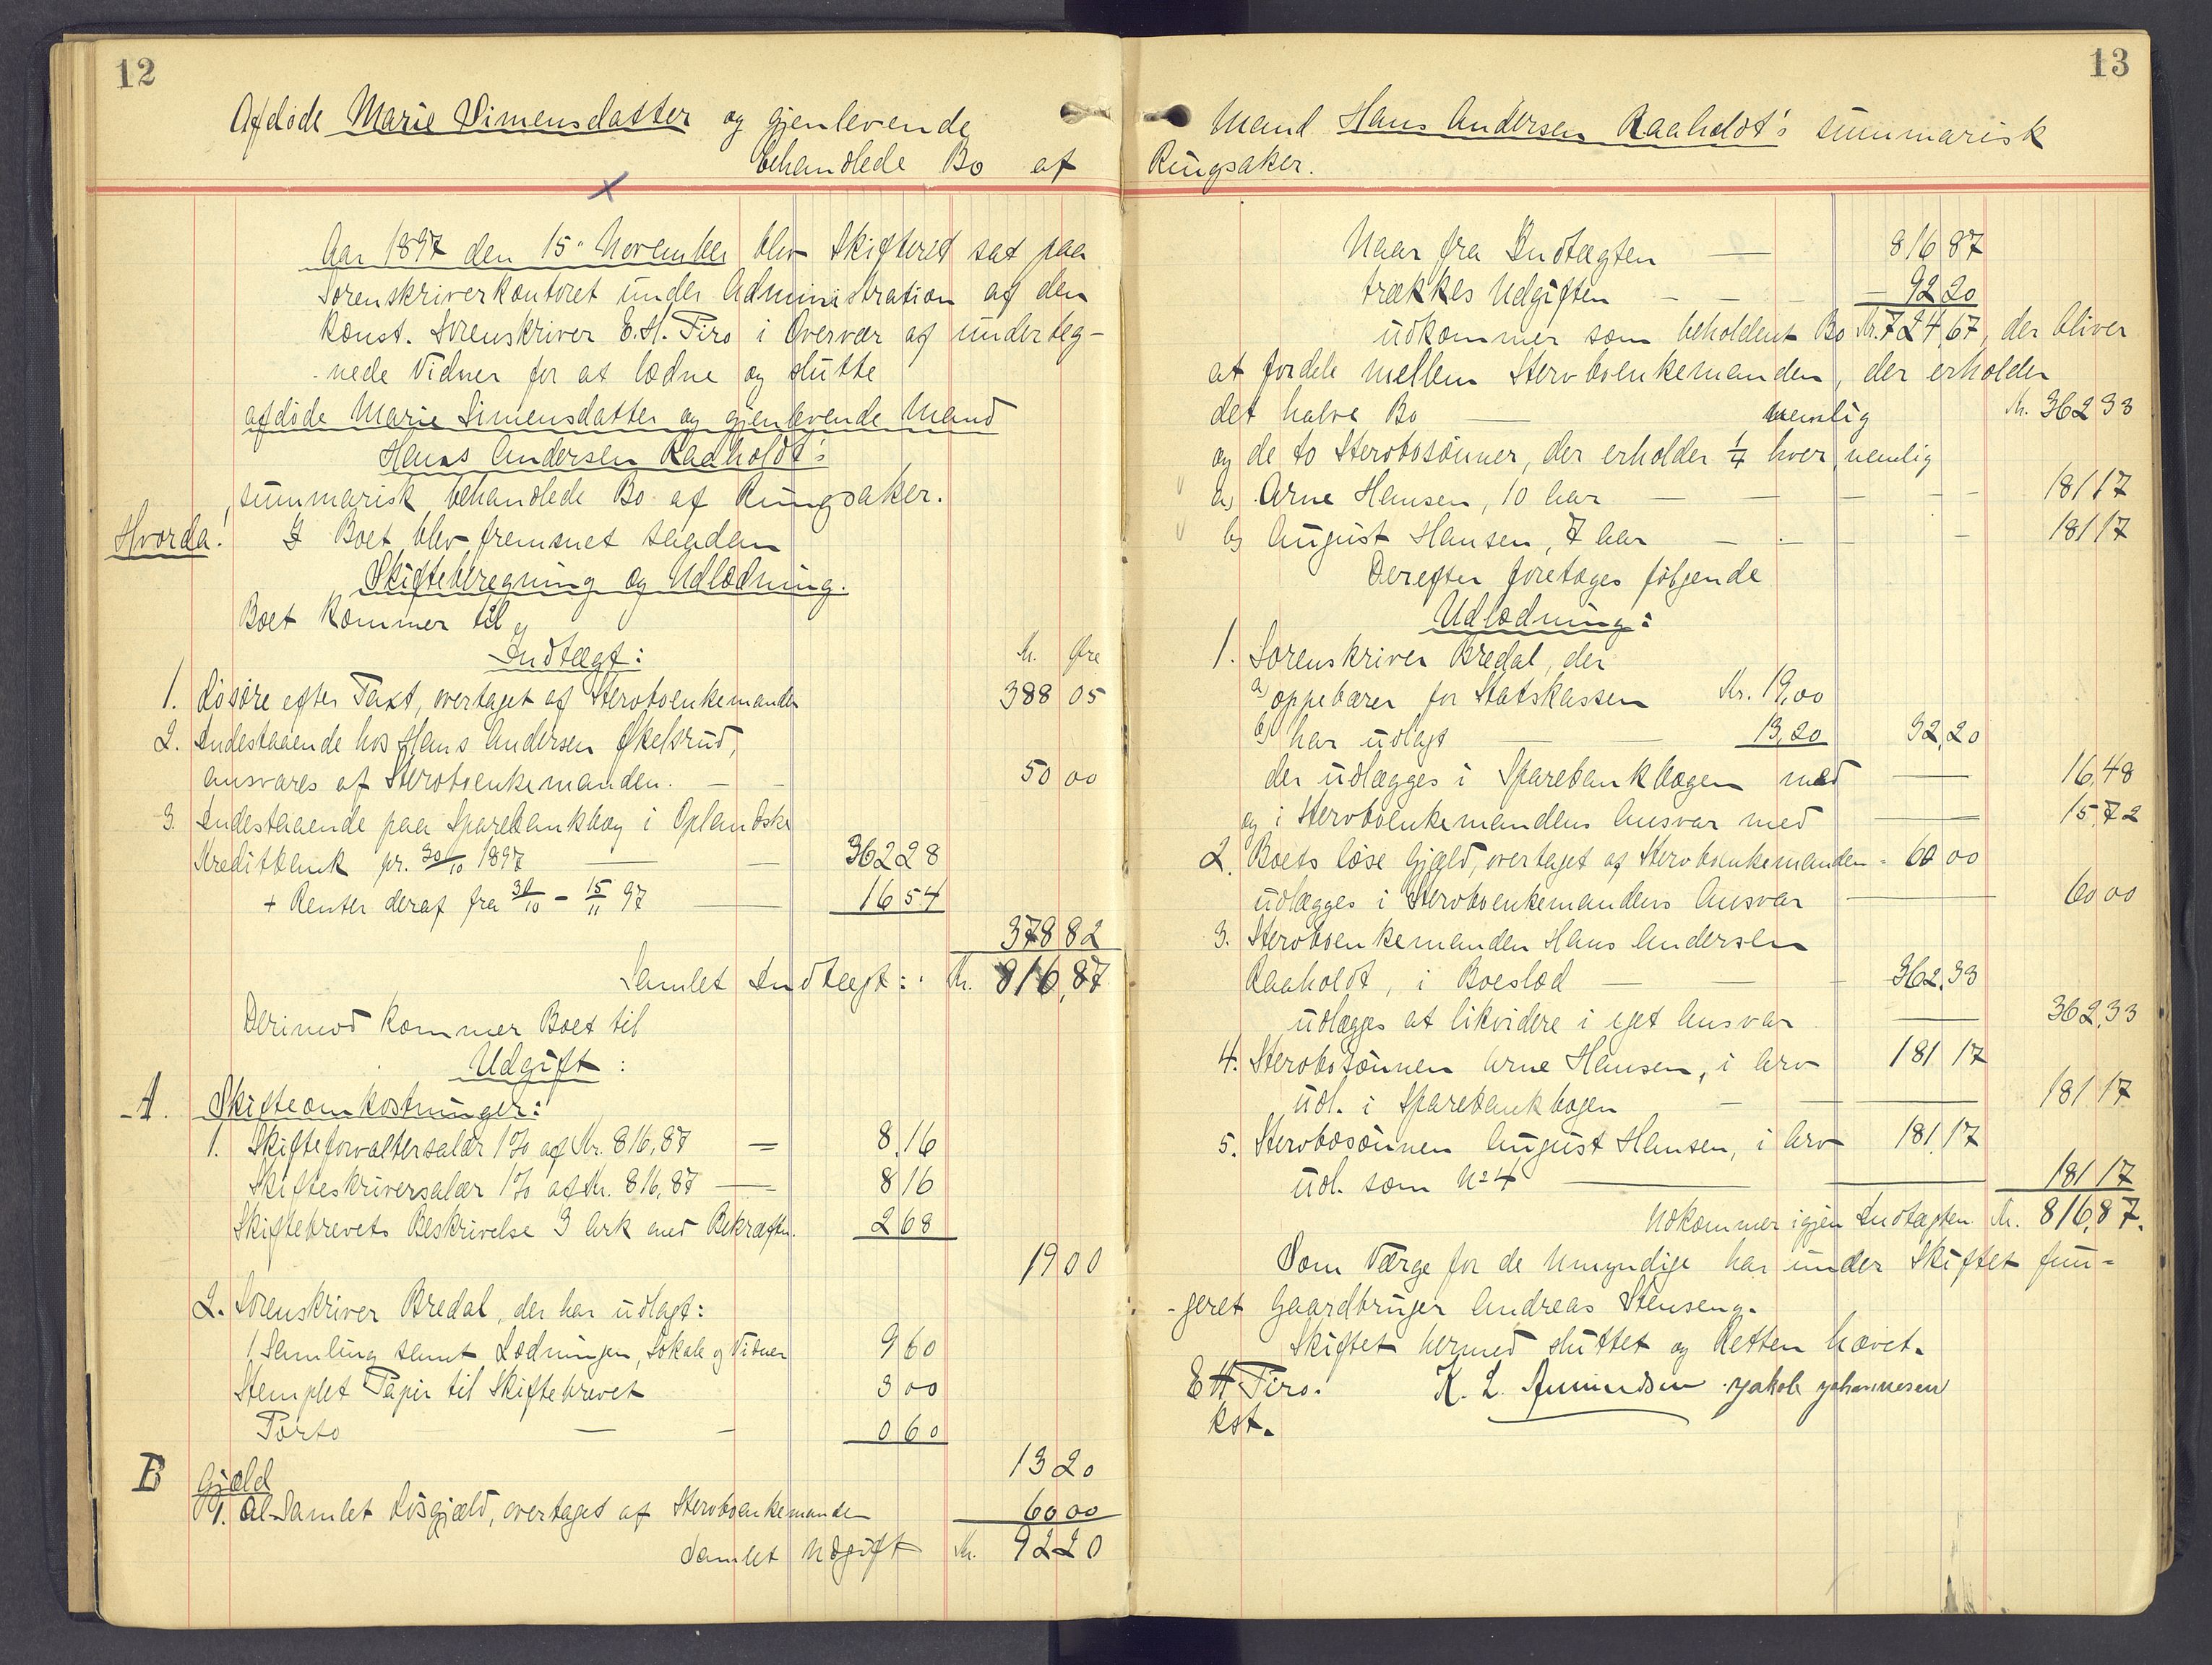 12
Afdøde Marie Simensdatter og gjenlevende
behandlede Bo af
Aar 1897 den 15 November blev Skifteret sat paa
Sorenskriverkontoret under Administration af den
konst. Sorenskriver E. H. Firo i Overvær af underteg-
-nede Vidner for at lodne og slutte
afdøde Marie Simensdatter og gjenlevende Mand
Hans Andersen Raaholdt's
summarisk behandlede Bo af Ringsaker.
Hvorda! I Boet blev fremsnet saadan
Skifteberegning og Udlodning.
Boet kommer til
Indtægt: Kr. Øre
1. Løsøre efter Taxt, overtaget af Stervboenkemanden 388 05
2. Indestaaende hos Hans Andersen Økelsrud,
ansvares af Stervboenkemanden. — - 50 00
3. Indestaaende paa Sparebankbog i Oplandske
Kreditbank pr. 30/10 1897 — — 362 28
+ Renter deraf fra 30/10 - 15/11 97 — 16 54
378 82
Samlet Indtægt: Kr. 816,87
Derimod kommer Boet til
Udgift:
A. Skifteomkostninger:
1. Skifteforvaltersalær 1% af Kr. 816,87 = 8,16
Skifteskriversalær 1% af Kr. 816,87 — 8 16
Skiftebrevets Beskrivelse 3 Ark med Bekræftn. 2 68
19 00
2. Sorenskriver Bredal, der har udlagt:
1 Samling samt Lodningen, Lokale og Vidner 9 60
Stemplet Papir til Skiftebrevet 3 00
Porto — — - 0 60
13 20
B Gjæld
1. Al Samlet Løsgjæld, overtaget af Stervboenkemanden 60 00
Samlet Udgift Kr. 92 20
13
Mand Hans Andersen Raaholdt's summarisk
Ringsaker.
Naar fra Indtægten — 816 87
trækkes Udgiften - - - — 92 20
udkommer som beholdent Bo Kr. 724,67, der bliver
at fordele mellem Stervboenkemanden, der erholder
det halve Bo — nemlig Kr. 362 33
og de to Stervbosønner, der erholder 1/4 hver, nemlig
a) Arne Hansen, 10 Aar — — - - 181 17
b) August Hansen, 7 Aar — - - - 181 17
Derefter foretages følgende
Udlodning:
1. Sorenskriver Bredal, der
a) oppebærer for Statskassen Kr. 19,00
b) har udlagt — — 13,20 32,20
der udlægges i Sparebankbogen med — 16,48
og i Stervboenkemandens Ansvar med — 15,72
2. Boets løse Gjæld, overtaget af Stervboenkemanden - 60 00
udlægges i Stervboenkemandens Ansvar — 60 00
3. Stervboenkemanden Hans Andersen
Raaholdt, i Boeslod — — - 362,33
udlægges at likvidere i eget Ansvar — 362,33
4. Stervbosønnen Arne Hansen, i Arv 181 17
udl. i Sparebankbogen - — 181 17
5. Stervbosønnen August Hansen, i Arv 181,17
udl. som No 4 — — 181 17
Udkommer igjen Indtægten Kr. 816,87.
Som Værge for de Umyndige har under Skiftet fun-
-geret Gaardbruger Andreas Stenseng.
Skiftet hermed sluttet og Retten hævet.
E H Firo. K. L. Amundsen Jakob Johannesen
kst.